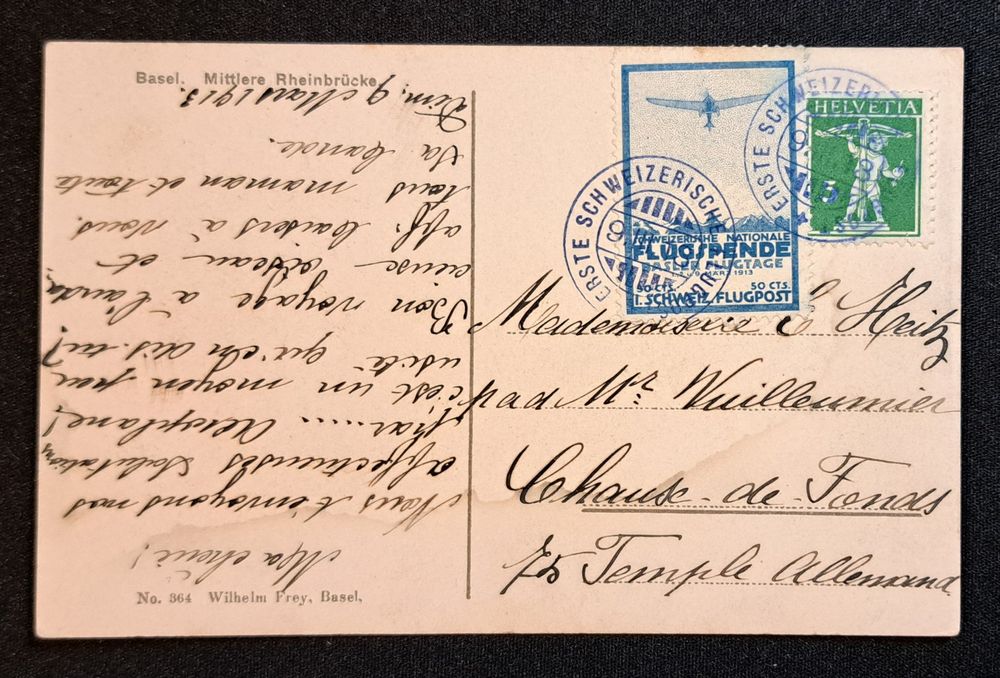 Basel. Mittlere Rheinbrücke
Dim. 9 Mars 1913.
Ma chérie!
Nous t'envoyons nos
affectueuses salutations
par.... Aéroplane!
c'est un moyen peu
usité qu'en dis-tu?
Bon voyage à l'auda
cieuse oiseau et
aff. baisers à vous
tous maman et toute
la bande.
No. 364 Wilhelm Frey, Basel.
SCHWEIZERISCHE NATIONALE
FLUGSPENDE
BASLER FLUGTAGE
9. MÄRZ 1913
50 CTS. 50 CTS.
I. SCHWEIZ. FLUGPOST
HELVETIA
5
ERSTE SCHWEIZERISCHE
ERSTE SCHWEIZERI
Mademoiselle E. Heitz
pad Mr. Wuilleumier
Chaux-de-Fonds
75 Temple Allemand